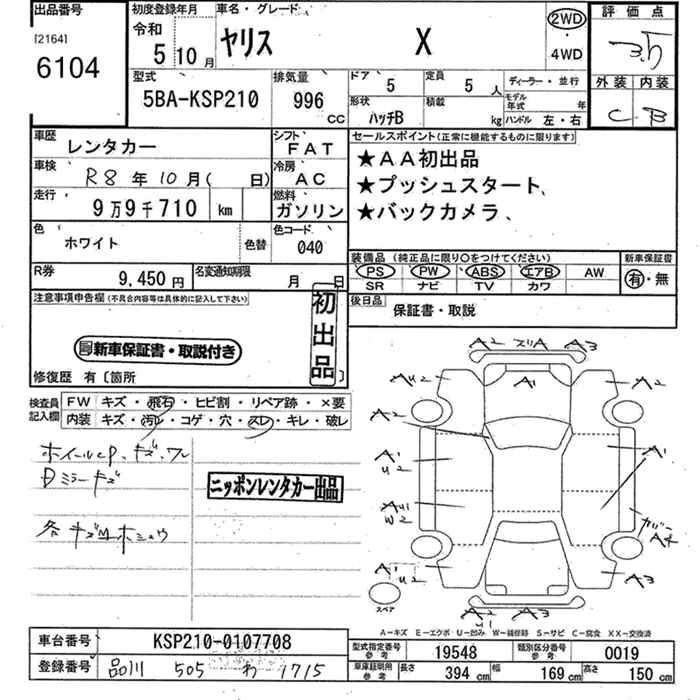 出品番号 初度登録年月 車名・グレード 評価点
[2164] 6104 令和 5年 10月 ヤリス X 2WD 4WD 3.5
外装 内装
C B
型式 排気量 ドア 定員 ディーラー・並行
5BA-KSP210 996 CC 5 5人 モデル年式 年
形状 積載 ハンドル 左・右
ハッチB kg
車歴 レンタカー シフト FAT セールスポイント(正常に機能するものに限ります)
車検 R8年10月( 日) 冷房 AC
★AA初出品
★プッシュスタート、
★バックカメラ、
走行 9万9千710 km 燃料 ガソリン
色 ホワイト 色替 色コード 040
装備品 (純正品に限り○をつけてください) 新車保証書
PS PW ABS エアB AW 有・無
SR ナビ TV カワ
R券 9,450円 名変通知期限 月 日
後日品 保証書・取説
注意事項申告欄(不具合内容等は具体的に記入して下さい)
初出品
新車保証書・取説付き
修復歴 有〔箇所 〕
検査員記入欄 FW キズ・飛石・ヒビ割・リペア跡・×要
内装 キズ・汚レ・コゲ・穴・スレ・キレ・破レ
ホイールcp、キズ、ワレ
Dミラーキズ
ニッポンレンタカー出品
各キズ
A2 スリA A3
AU2 A1 AU2
A2
A1 U2 A1
AU1 W2
ガリ A4
A1 U2 A3
スペア
A2 A3
A-キズ E-エクボ U-凹み W-補修跡 S-サビ C-腐食 XX-交換済
車台番号 KSP210-0107708 型式指定番号 参考 19548 類別区分番号 参考 0019
登録番号 品川 505 わ 1715 車庫証明用 参考 長さ 394 cm 幅 169 cm 高さ 150 cm